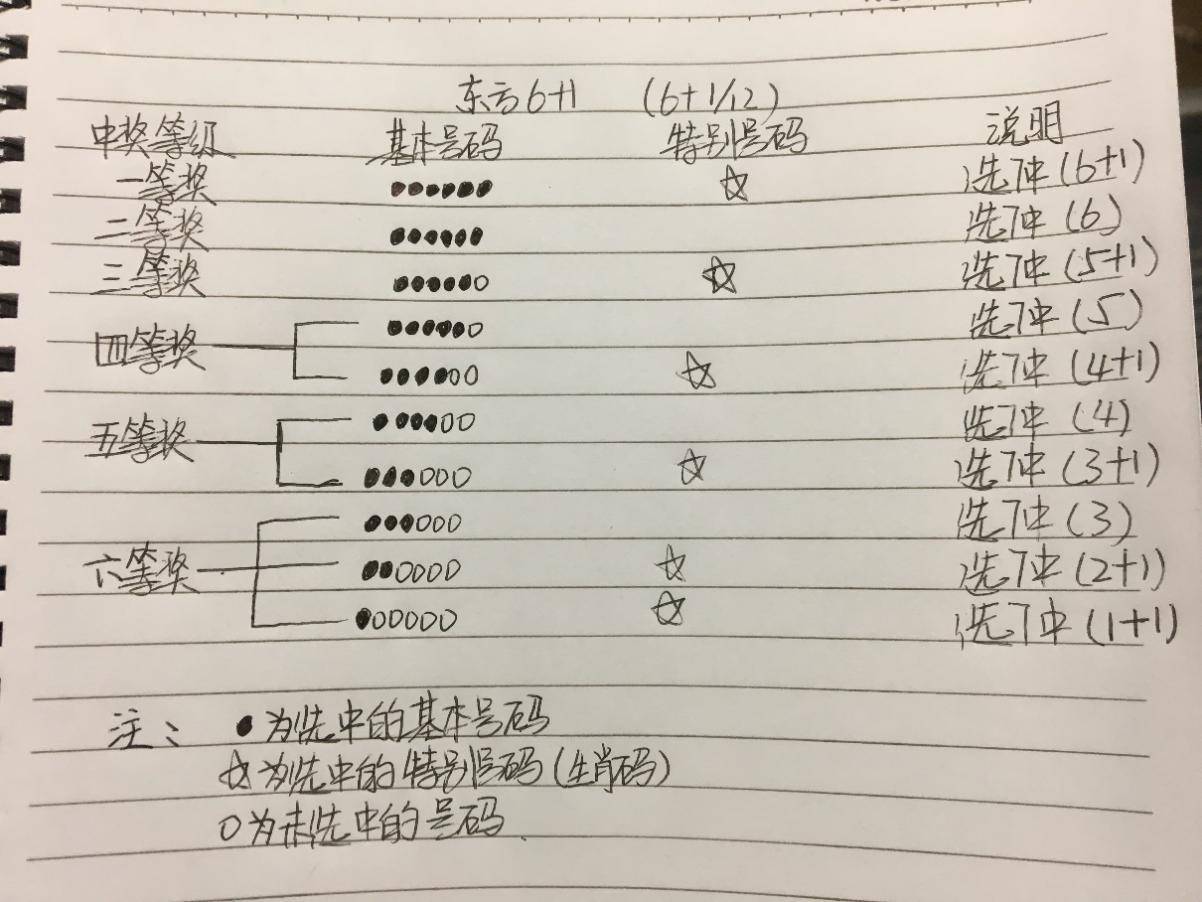 东方6+1 (6+1/12)
中奖等级 基本号码 特别号码 说明
一等奖 ●●●●●● ☆ 选7中(6+1)
二等奖 ●●●●●● 选7中(6)
三等奖 ●●●●●○ ☆ 选7中(5+1)
四等奖 ●●●●●○ 选7中(5)
●●●●○○ ☆ 选7中(4+1)
五等奖 ●●●●○○ 选7中(4)
●●●○○○ ☆ 选7中(3+1)
●●●○○○ 选7中(3)
六等奖 ●●○○○○ ☆ 选7中(2+1)
●○○○○○ ☆ 选7中(1+1)
注: ●为选中的基本号码
☆为选中的特别号码(生肖码)
○为未选中的号码